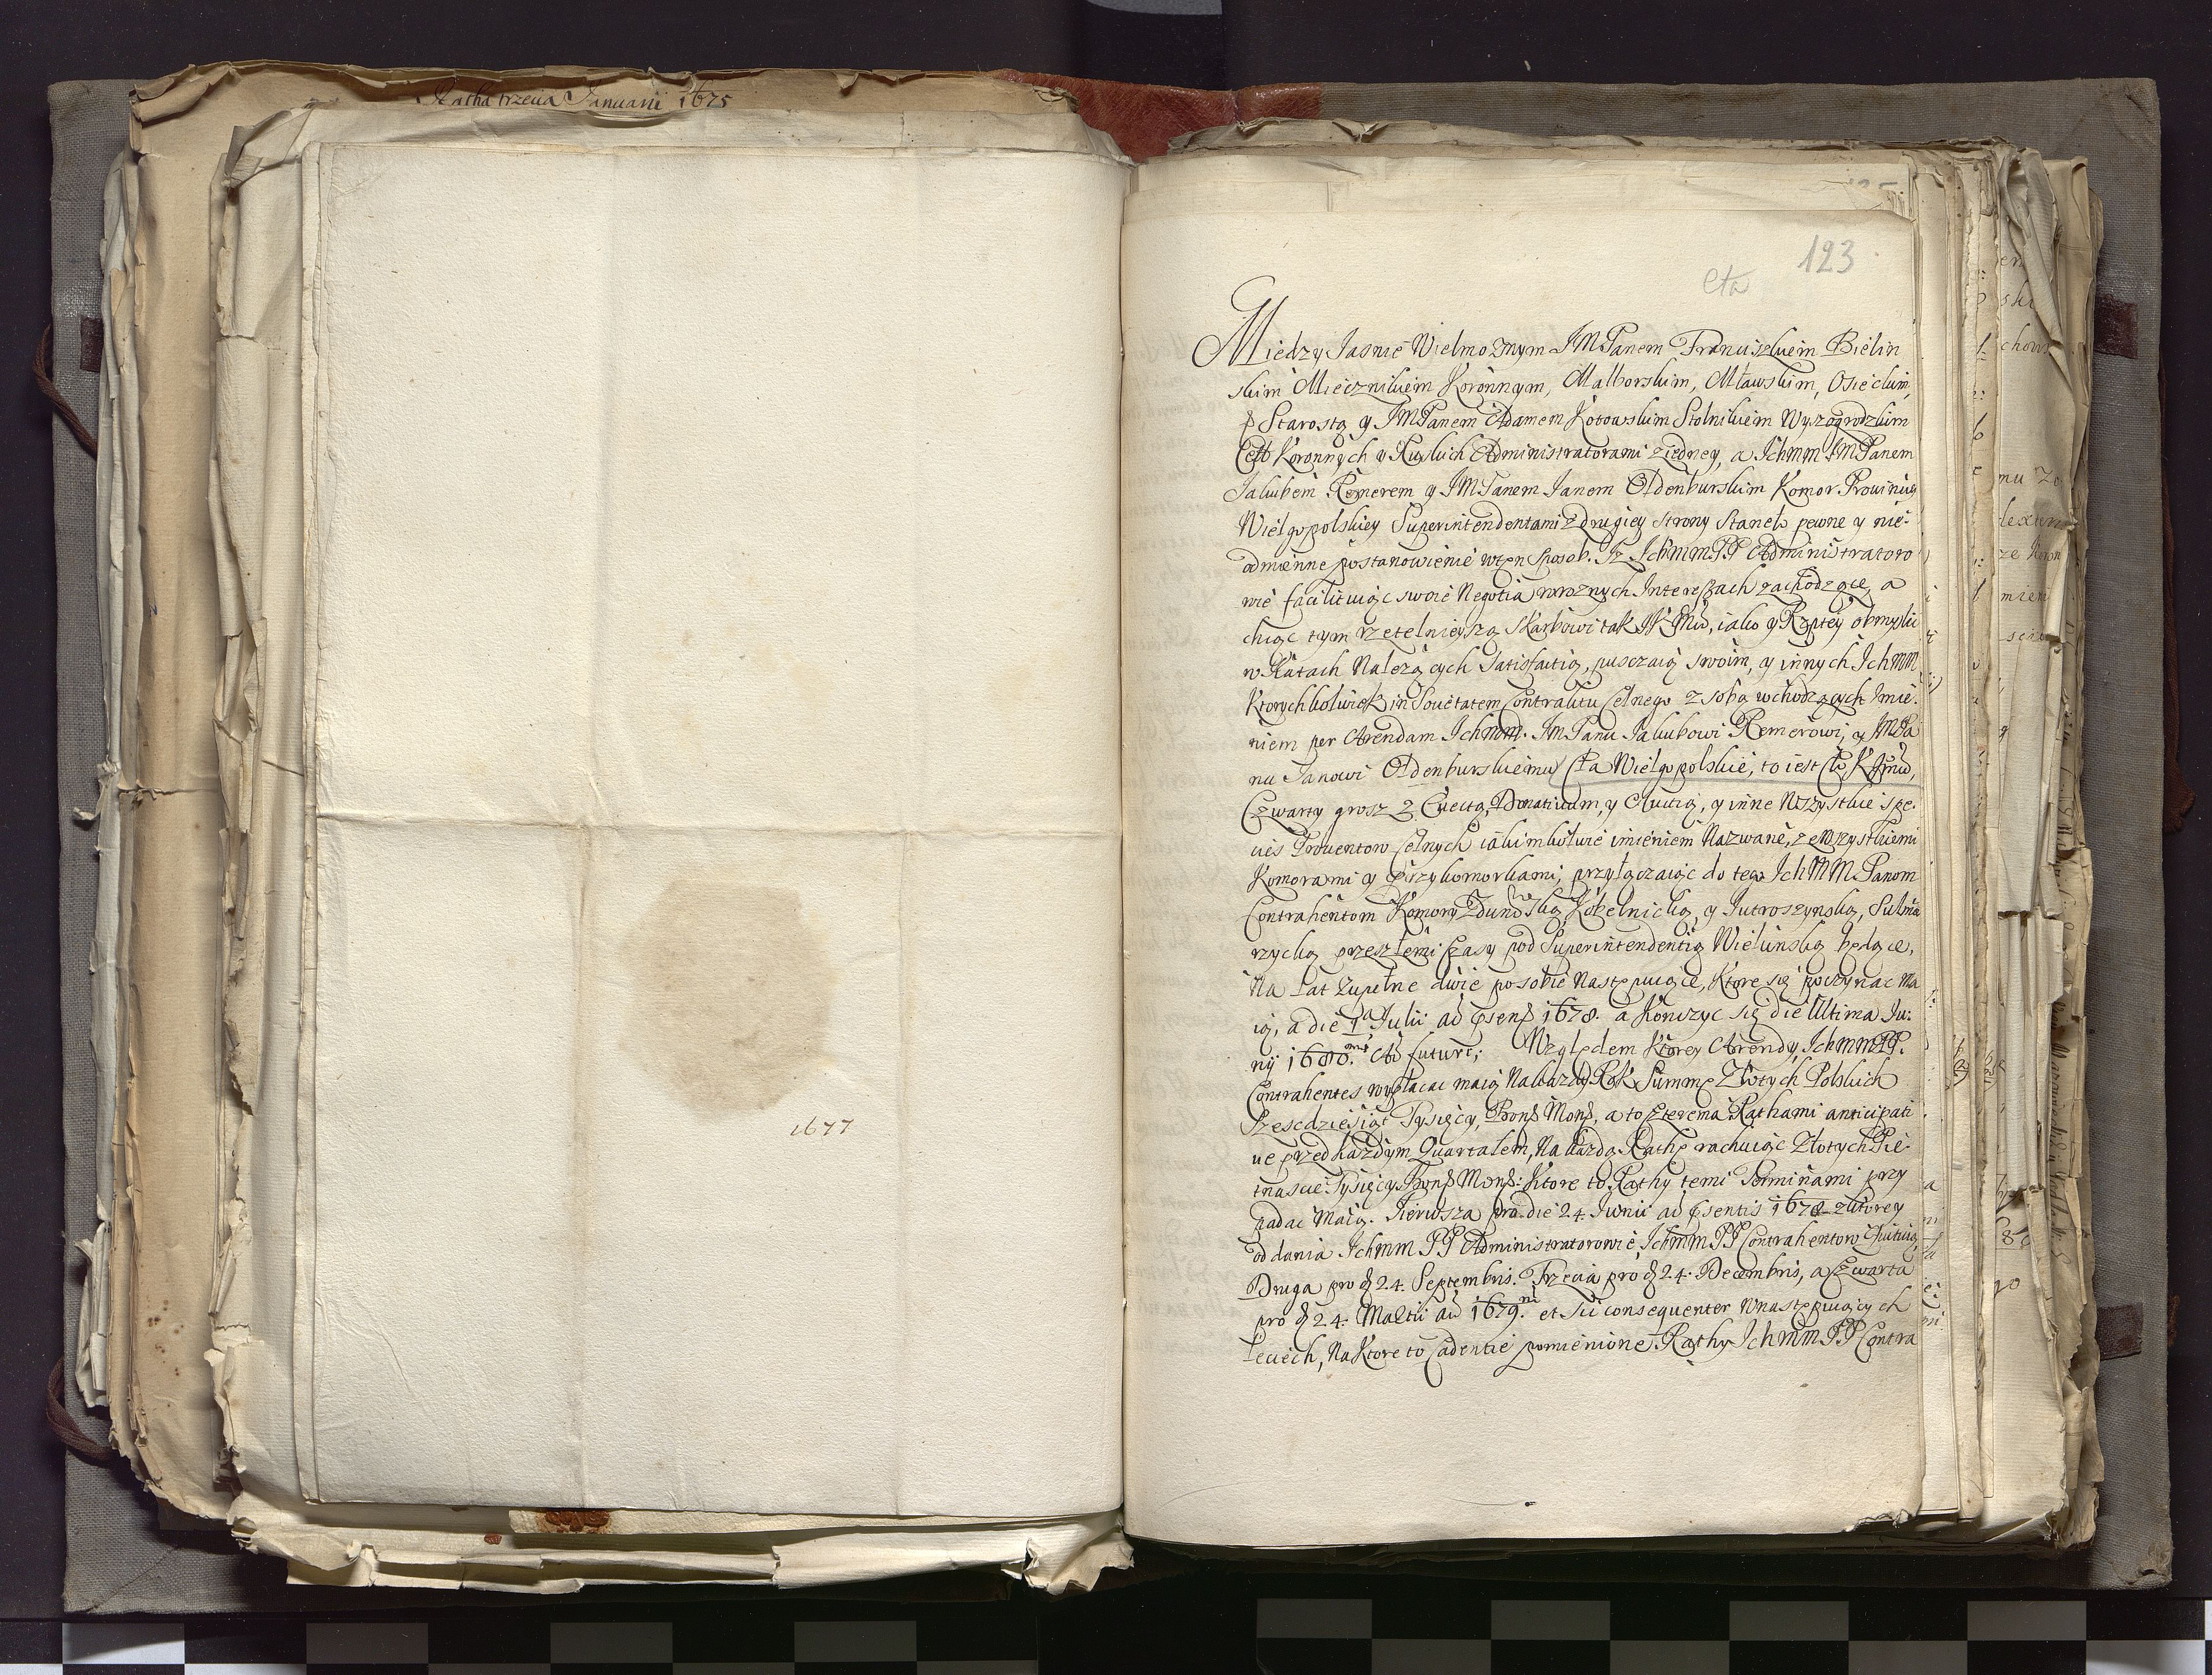 Ratha trzecia Januarii 1675
1677
123
Cła
Miedzy Jasnie Wielmożnym JMPanem Franciszkiem Bielin
skim Miecznikiem Koronnym, Malborskim, Mławskim, Osieckim,
Starostą y JMPanem Adamem Kotowskim Stolnikiem Wyszogrodzkim
Ceł Koronnych y Ruskich Administratorami z iedney, a Ichmm JMPanem
Jakubem Remerem y JMPanem Janem Oldenburskim Komor Prowincij
Wielgopolskiey Superintendentami z drugiey strony Stanęło pewne y nie-
odmienne postanowienie w ten sposob. Iż Ichmm PP Administratoro
wie facilituiąc swoie Negotia w roznych Interessach zachodzące, a
chcąc tym rzetelnieyszą Skarbowi tak JKMci, iako y Rzptey obmyslic
w Ratach Należących Satisfactią, pusczaią swoim, y innych Ichmm
Ktorychkolwiek in Societatem Contraktu Celnego z sobą wchodzących Imie-
niem per Arendam Ichmm. JmPanu Jakubowi Remerowi, y JMPa
nu Janowi Oldenburskiemu Cła Wielgopolskie, to iest Cło KJMci,
Czwarty grosz z Cuecta, Donativum, y Aucią, y inne Wszystkie spe-
cies Proventow Celnych iakimkolwie imieniem Nazwane, ze Wszystkiemi
Komorami y Przykomorkami, przyłączaiąc do tego IchMM Panom
Contrahentom Komory Zdunską, Kobelnicką, y Jutroszynską, Sulmie
rzycką przeszłemi Czasy pod Superintendentią Wielunską będące,
Na Lat Zupełne dwie po sobie Następuiące, Ktore się poczynac Ma
ią, a die 1a Julii ad psens 1678. a Konczyc się die Ultima Ju-
nij 1680. Ad futuri; Względem Ktorey Arendy Ichmm PP.
Contrahentes wypłacac maią Na każdy Rok Summę Złotych Polskich
Szescdziesiąt Tysięcy, Bonæ Monæ, a to Czterema Rathami anticipati
ve przed każdym Quartałem, Na każdą Rathę rachuiąc Złotych Pię-
tnascie Tysięcy Bonæ Monæ: Ktore to Rathy temi Terminami przy
padac Maią. Pierwsza pro die 24. Junii ad psentis 1678 z ktorey
oddania Ichmm PP Administratorowie, Ichmm PP Contrahentow Quituią,
Druga pro d 24. Septembris. Trzecia pro d 24. Decembris, a Czwarta
pro d 24. Martii ad 1679. et sic consequenter w następuiących
Leciech, Na Ktore to Cadentie pomienione Rathy Ichmm PP Contra